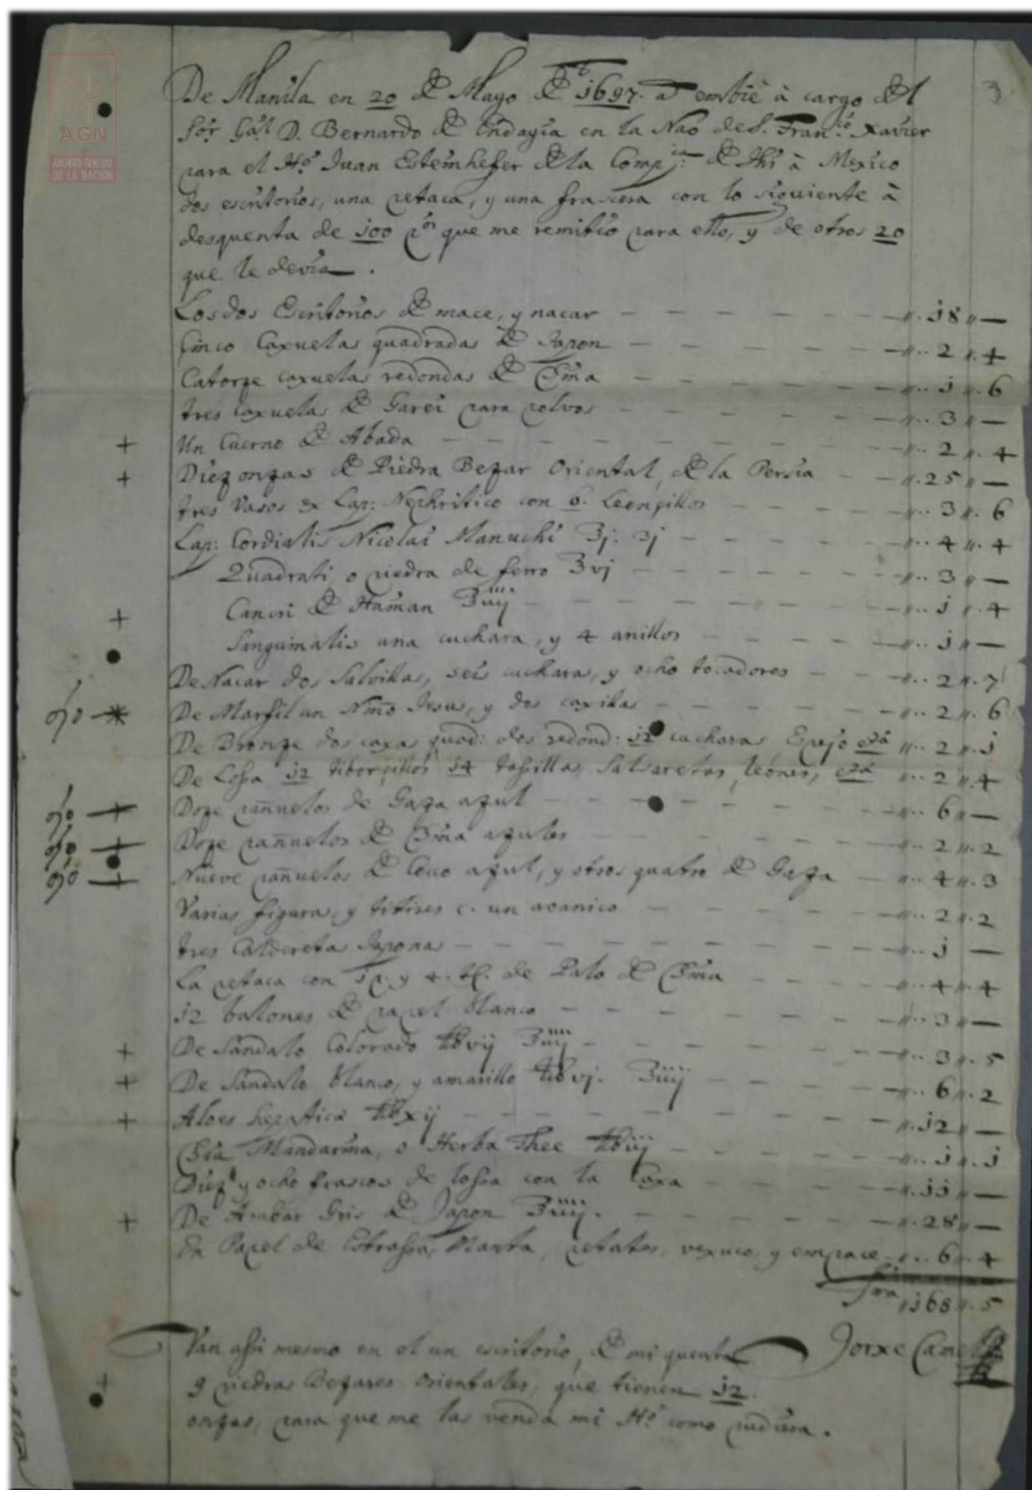 3
De Manila en 20 de Mayo de 1697. a embie à cargo del
Sor. Gāl D. Bernardo de Endaÿia en la Nao de S. Franco. Xavier
para el Ho. Juan Esteinhefer de la Compia: de Jhs à Mexico
dos escritorios, una petaca, y una frascera con lo siguiente à
desquenta de 100 ps. que me remitio para ello, y de otros 20
que le devia.
Los dos Escritorios de mace, y nacar — 18 —
Cinco Caxuelas quadradas de Japon — 2 4
Catorze caxuelas redondas de China — 1 6
tres caxuelas de Garei para polvos — 3 —
+ Un Cuerno de Abada — 2 4
+ Diez onzas de Piedra Bezar Oriental, de la Persia — 25 —
tres Vasos ex Lap: Nephritico con 6. Leonzillos — 3 6
Lap: Cordialis Nicolai Manuchi ʒj. ℈j — 4 4
Quadrati, o piedra de ferro ʒvj — 3 —
+ Cancri de Hainan ʒiiij — 1 4
Sanguinalis una cuchara, y 4 anillos — 1 —
De Nacar dos Salvillas, seis cucharas, y ocho tocadores — 2 7
ojo * De Marfil un Niño Jesus, y dos caxillas — 2 6
De Bronze dos caxas quad: dos redond: 12 cucharas Espejo — 2 1
De Losa 12 tiborcillos 14 tassillas, Salsaretas, leones, — 2 4
ojo + Doze pañuelos de Gaza azul — 6 —
ojo + Doze pañuelos de China azules — 2 2
ojo + Nueve pañuelos de Coco azul, y otros quatro de Gaza — 4 3
Varias figuras, y titires c. un avanico — 2 2
tres Caldereta Japona — 1 —
La petaca con de Palo de China — 4 4
12 balones de papel blanco — 3 —
+ De Sandalo Colorado ℔vij ʒiiij — 3 5
+ De Sandalo blanco, y amarillo ℔vj. ʒiiij — 6 2
+ Aloes hepatica ℔xij — 12 —
Chia Mandarina, o Herba Thee ℔iij — 1 1
Diez y ocho frascos de losa con la Caxa — 11 —
+ De Ambar Gris de Japon ʒiiij. — 28 —
En Papel de Estrassa, Manta, petates, vexuco, y empaque — 6 4
Sma 168 5
Van assi mesmo en el un escritorio, de mi quenta
Jorxe Camel
9 piedras Bezares orientales, que tienen 12.
+ onzas, para que me las venda mi Ho. como pudiera.
AGN
ARCHIVO GENERAL
DE LA NACIÓN